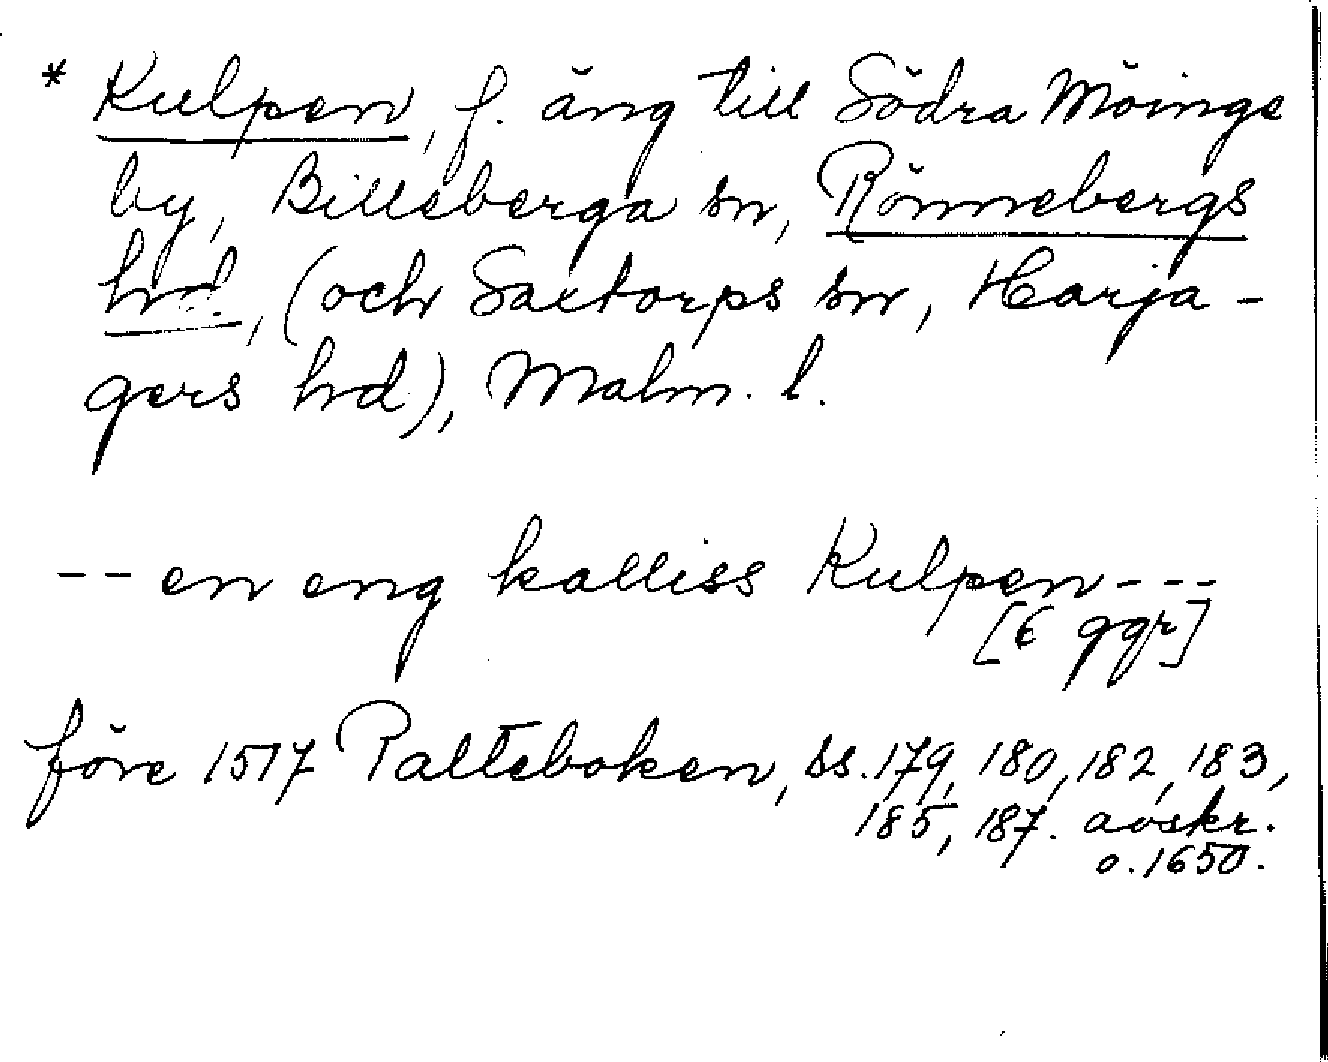 * Kulpen, f. äng till Södra Möinge
by, Billeberga sn, Rönnebergs
hrd., (och Saxtorps sn, Harja-
gers hrd), Malm. l.
-- en eng kalliss Kulpen ---
[6 ggr]
före 1517 Palteboken, ss. 179, 180, 182, 183,
185, 187. avskr.
o. 1650.